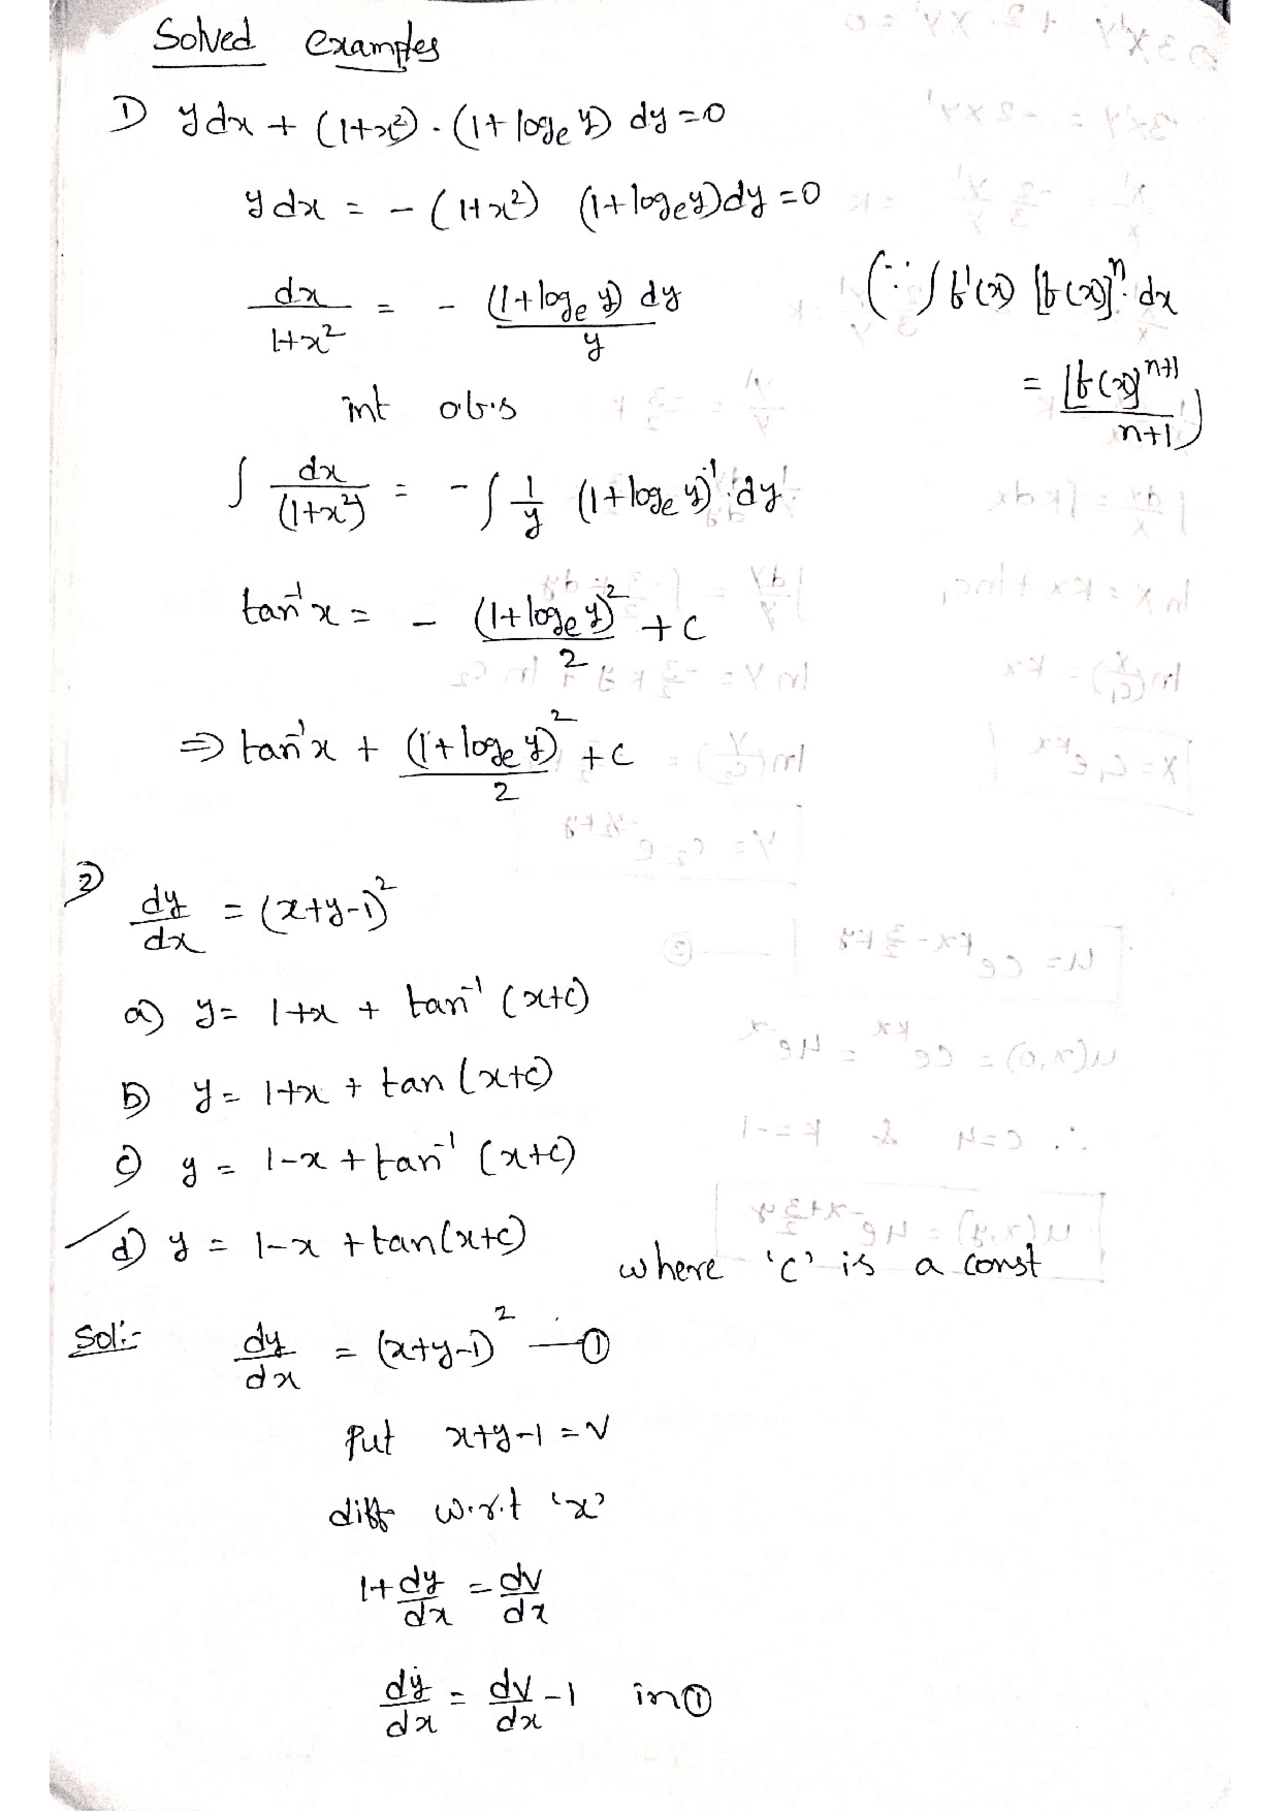 Solved examples
1) y dx + (1+x²) . (1+ logₑ y) dy = 0
y dx = - (1+x²) (1+logₑy)dy = 0
dx/1+x² = - (1+logₑ y) dy/y
(∵ ∫ f'(x) [f(x)]ⁿ. dx
= [f(x)]ⁿ⁺¹/n+1)
int o.b.s
∫ dx/(1+x²) = - ∫ 1/y (1+logₑ y)¹. dy
tan⁻¹x = - (1+logₑ y)²/2 + c
⇒ tan⁻¹x + (1+logₑ y)²/2 + c
2) dy/dx = (x+y-1)²
a) y = 1+x + tan⁻¹ (x+c)
b) y = 1+x + tan (x+c)
c) y = 1-x + tan⁻¹ (x+c)
d) y = 1-x + tan(x+c) where 'c' is a const
Sol:- dy/dx = (x+y-1)² — ①
Put x+y-1 = v
diff w.r.t 'x'
1+ dy/dx = dv/dx
dy/dx = dv/dx - 1 in ①